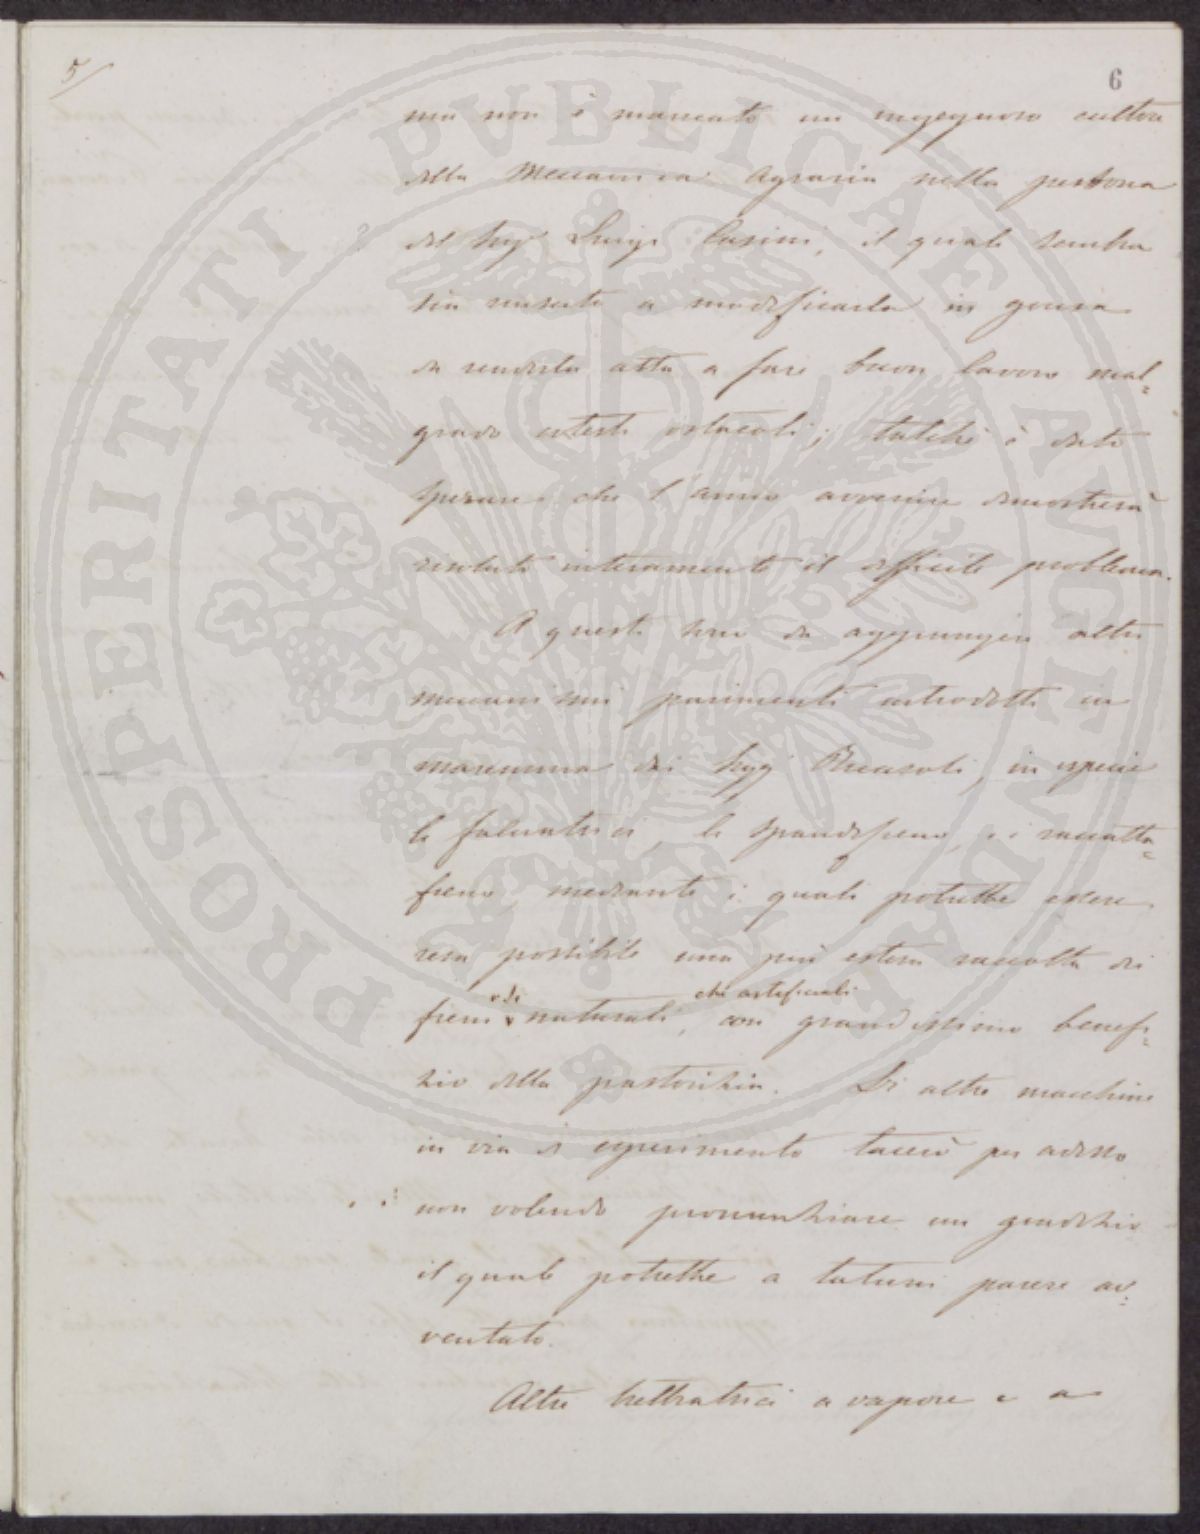 5/
6
ma non è mancato un ingegnoso cultore
della Meccanica Agraria nella persona
del Sigr Luigi Casini, il quale sembra
sia riuscito a modificarla in guisa
da renderla atta a fare buon lavoro mal=
grado cotesti ostacoli; talchè è dato
sperare che l'anno avvenire dimostrerà
risoluto interamente il difficile problema.
A questi sono da aggiungere altri
meccanismi parimenti introdotti in
maremma dai Sigg Ricasoli, in specie
le falciatrici, le spandifieno, e i raccatta=
fieno mediante i quali potrebbe essere
resa possibile una più estesa raccolta di
fieni sì naturali, che artificiali con grandissimo benefi=
zio della pastorizia. Di altre macchine
in via di esperimento tacerò per adesso
non volendo pronunziare un giudizio
il quale potrebbe a taluni parere av=
ventato.
Altre trebbiatrici a vapore e a
PROSPERITATI PVBLICAE AVGENDAE